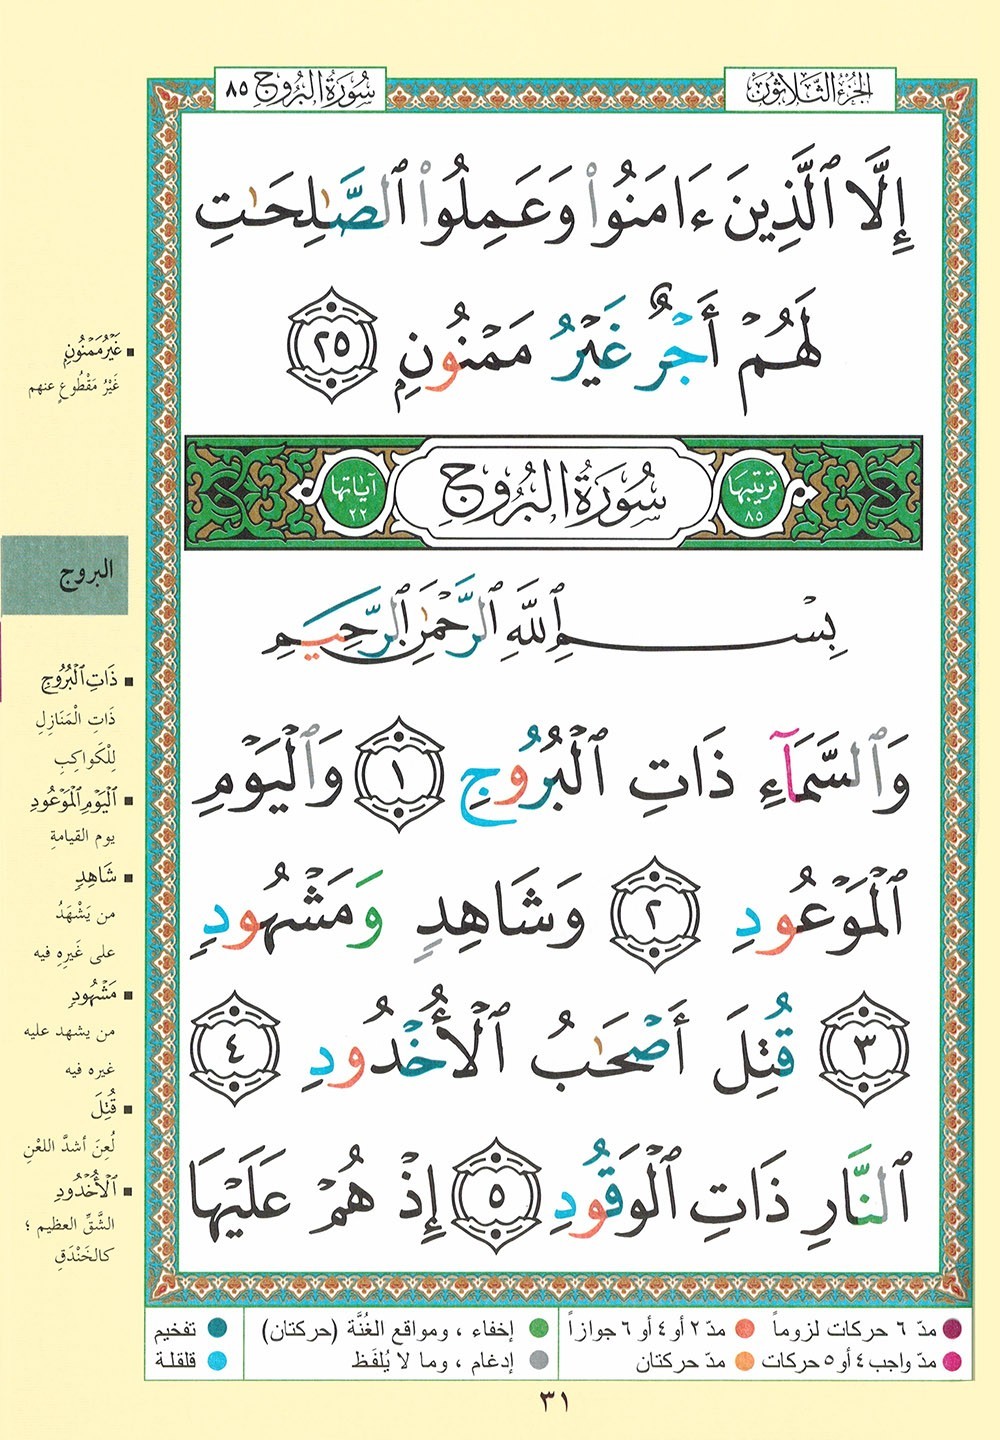 الجزء الثلاثون
سورة البروج ٨٥
إِلَّا ٱلَّذِينَ ءَامَنُوا۟ وَعَمِلُوا۟ ٱلصَّـٰلِحَـٰتِ
لَهُمْ أَجْرٌ غَيْرُ مَمْنُونٍۭ ٢٥
ترتيبها ٨٥
سُورَةُ البُرُوجِ
آياتها ٢٢
بِسْمِ ٱللَّهِ ٱلرَّحْمَـٰنِ ٱلرَّحِيمِ
وَٱلسَّمَآءِ ذَاتِ ٱلْبُرُوجِ ١ وَٱلْيَوْمِ
ٱلْمَوْعُودِ ٢ وَشَاهِدٍ وَمَشْهُودٍ
٣ قُتِلَ أَصْحَـٰبُ ٱلْأُخْدُودِ ٤
ٱلنَّارِ ذَاتِ ٱلْوَقُودِ ٥ إِذْ هُمْ عَلَيْهَا
غَيْرُ مَمْنُونٍ
غَيْرُ مَقْطُوعٍ عنهم
البروج
ذَاتِ ٱلْبُرُوجِ
ذَاتِ الْمَنَازِلِ
لِلْكَواكِبِ
ٱلْيَوْمِ ٱلْمَوْعُودِ
يوم القيامةِ
شَاهِدٍ
من يَشْهَدُ
على غَيرِهِ فيه
مَشْهُودٍ
من يشهد عليه
غيره فيه
قُتِلَ
لُعِنَ أشدَّ اللعْنِ
ٱلْأُخْدُودِ
الشَّقِّ العظيم ؛
كالخَنْدَقِ
مدّ ٦ حركات لزوماً
مدّ ٢ أو ٤ أو ٦ جوازاً
إخفاء ، ومواقع الغُنَّة (حركتان)
تفخيم
مدّ واجب ٤ أو ٥ حركات
مدّ حركتان
إدغام ، وما لا يُلفَظ
قلقلة
٣١